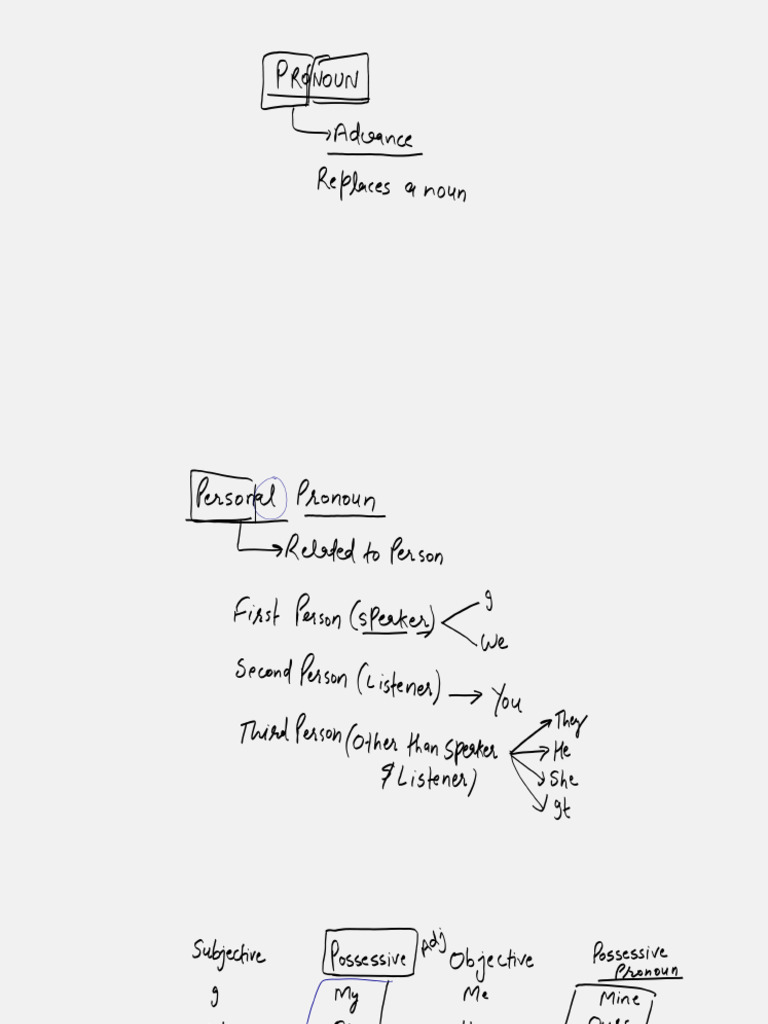 PRONOUN
Advance
Replaces a noun
Personal Pronoun
Related to Person
First Person (Speaker)
I
We
Second Person (Listener)
You
Third Person (Other than Speaker
& Listener)
They
He
She
It
Subjective Possessive Adj Objective Possessive
Pronoun
I My Me Mine